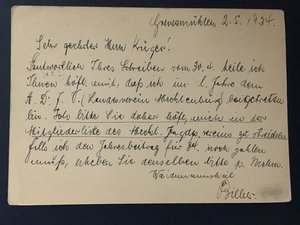 Grevesmühlen 2.5.1934.
Sehr geehrter Herr Krüger!
Beantwortlich Ihres Schreibens vom 30.4. teile ich
Ihnen höfl. mit, daß ich im l. Jahre dem
A. D. J. V. (Landesverein Mecklenburg) beigetreten
bin. Ich bitte Sie daher höfl. mich in der
Mitgliederliste des Meckl. Jagdvereins zu streichen
falls ich den Jahresbeitrag für 34. noch zahlen
muß, erheben Sie denselben bitte p. Nachn.
Waidmannsheil